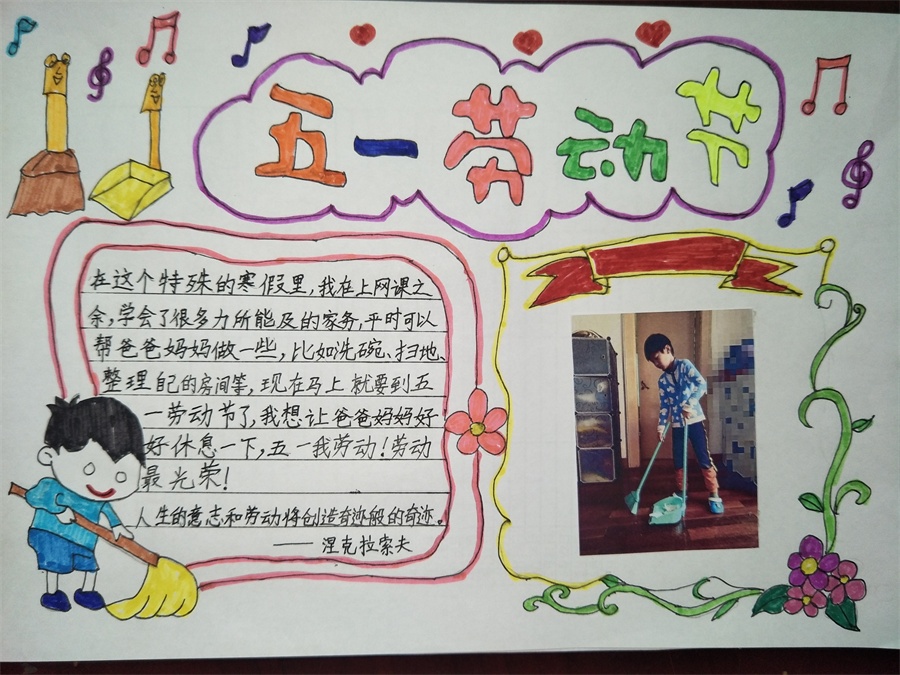 五一劳动节
在这个特殊的寒假里,我在上网课之
余,学会了很多力所能及的家务,平时可以
帮爸爸妈妈做一些,比如洗碗、扫地、
整理自己的房间等,现在马上就要到五
一劳动节了,我想让爸爸妈妈好
好休息一下,五一我劳动!劳动
最光荣!
人生的意志和劳动将创造奇迹般的奇迹。
——涅克拉索夫